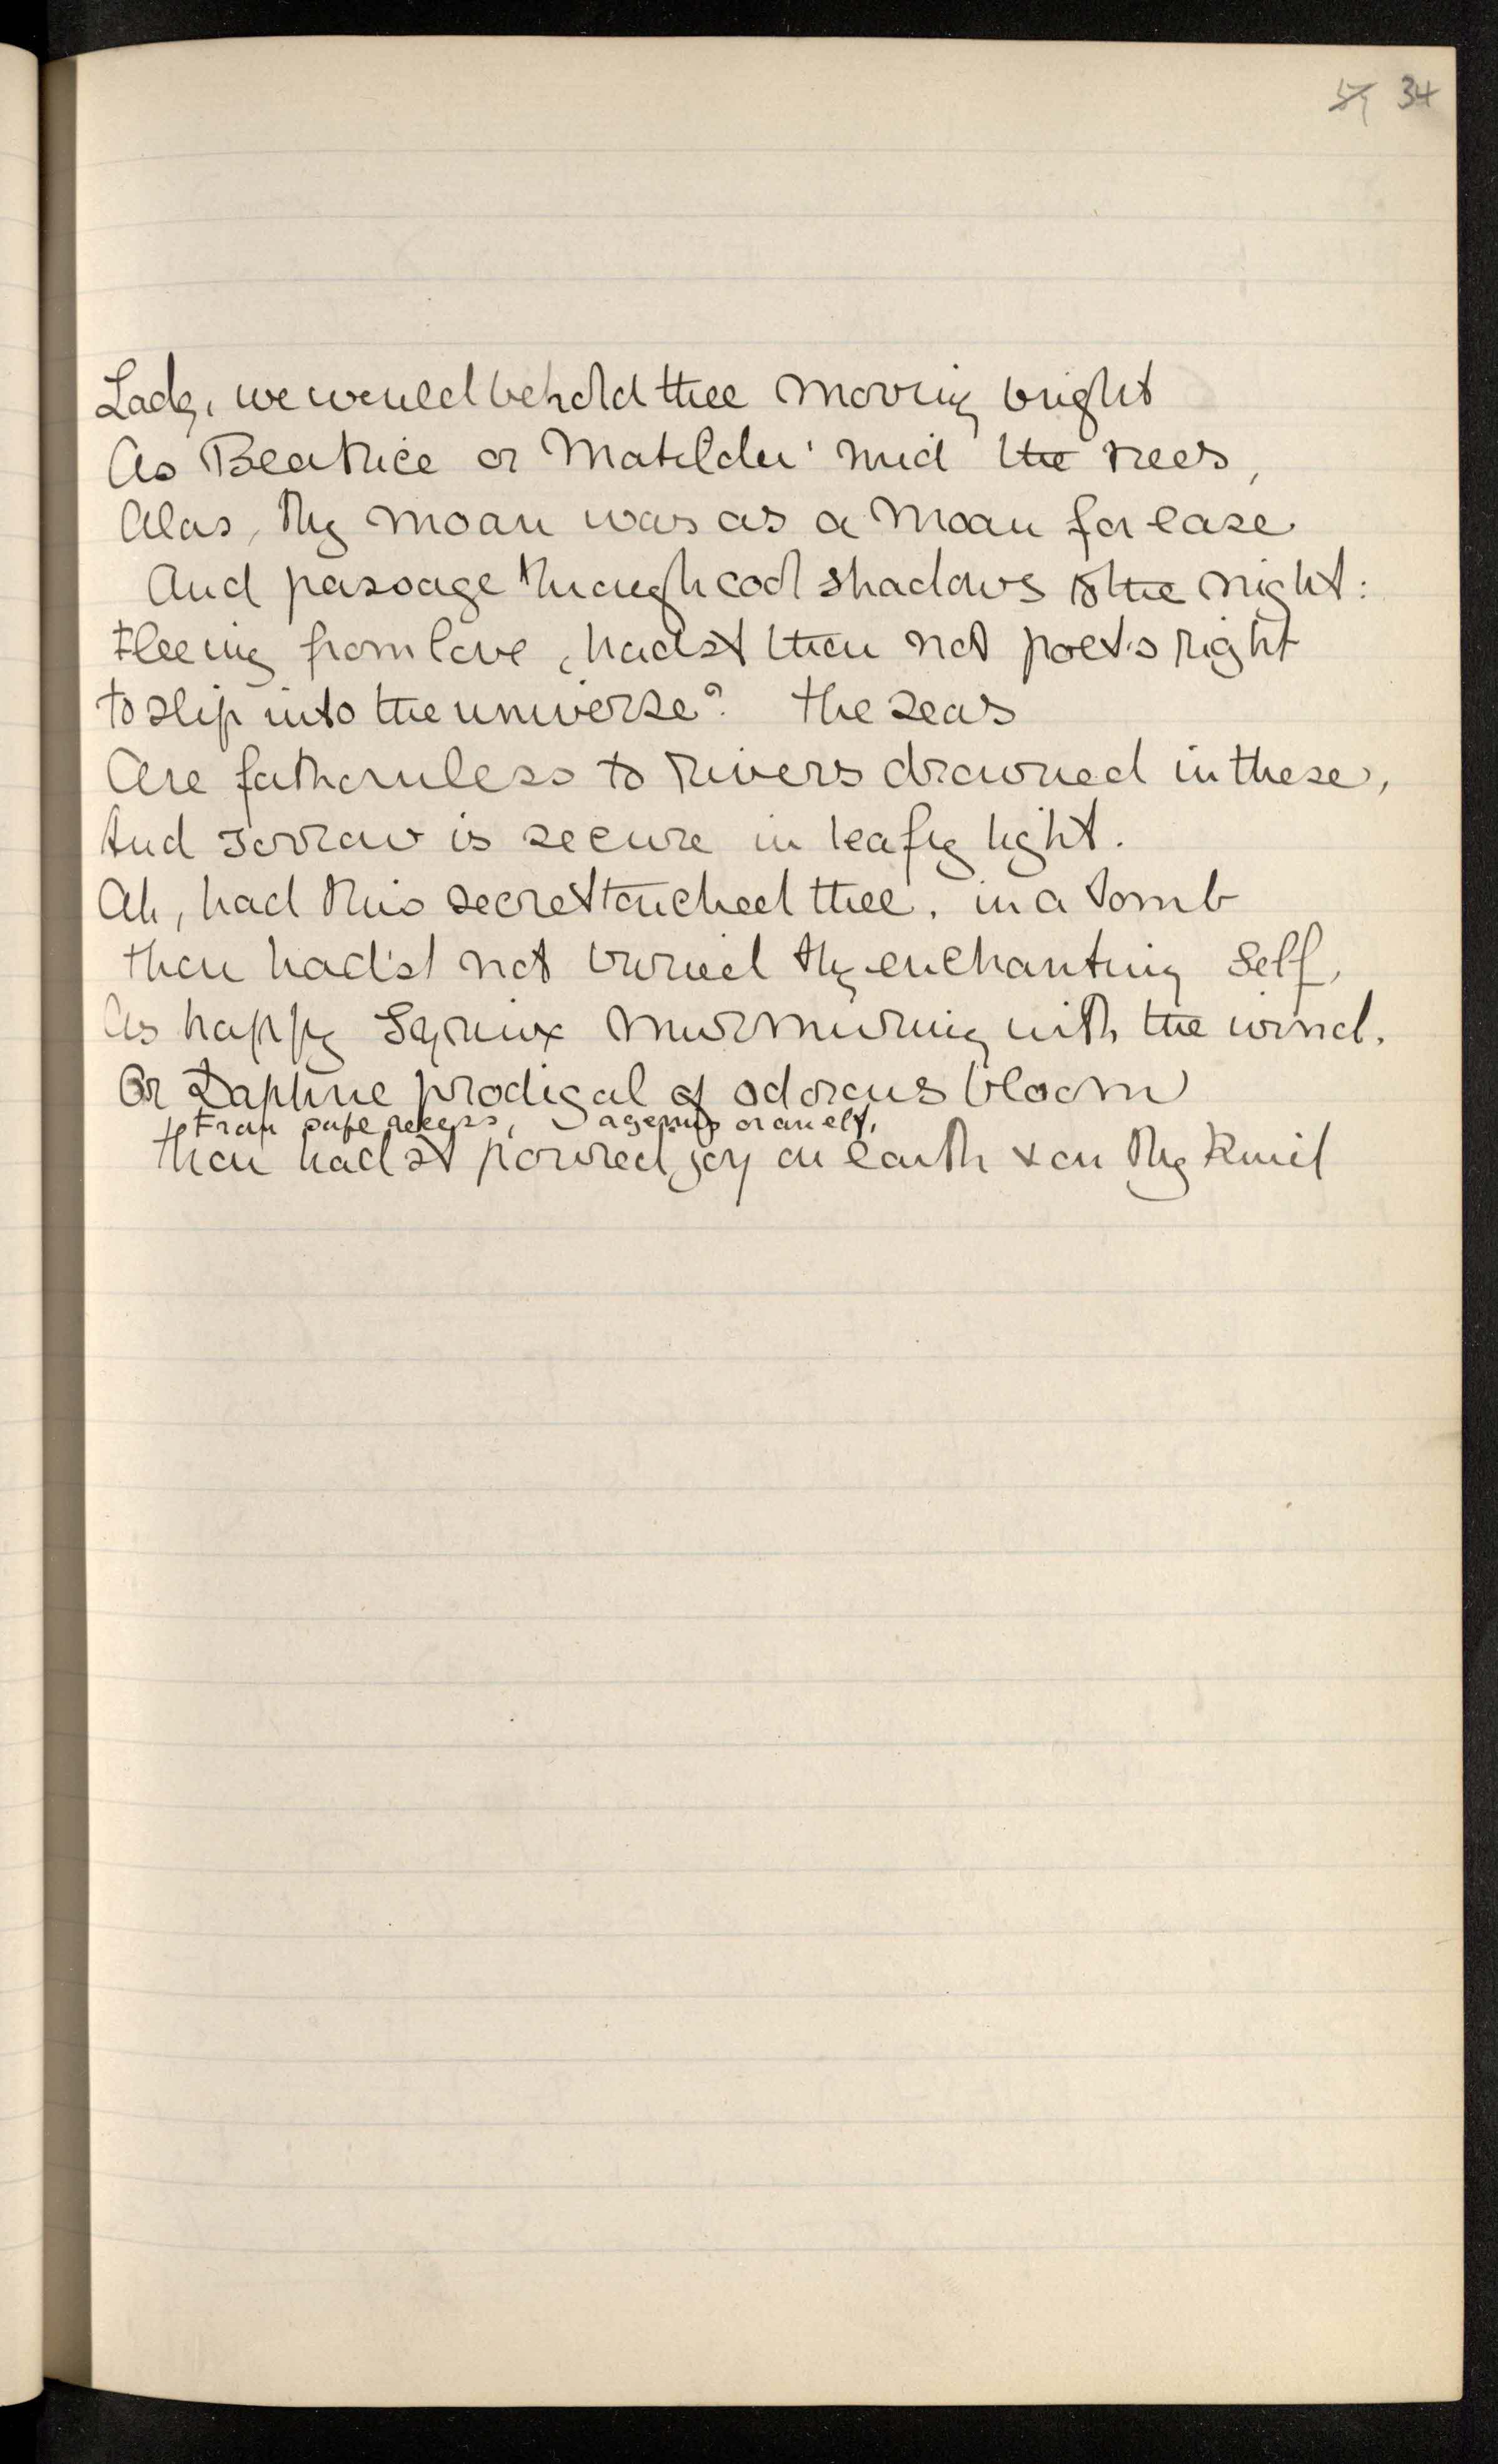 59 34
Lady, we would behold thee moving bright
As Beatrice or Matilda 'mid the trees,
Alas, thy moan was as a moan for ease
And passage through cool shadows to the night:
Fleeing from love, hadst thou not poet's right
to slip into the universe? the seas
Are fathomless to rivers drowned in these,
And sorrow is secure in leafy light.
Ah, had this secret touched thee, in a tomb
thou had'st not buried thy enchanting self,
As happy Syrinx murmuring with the wind,
Or Daphne prodigal of odorous bloom
From safe recess, a genius or an elf,
thou had'st poured joy on earth & on thy kind